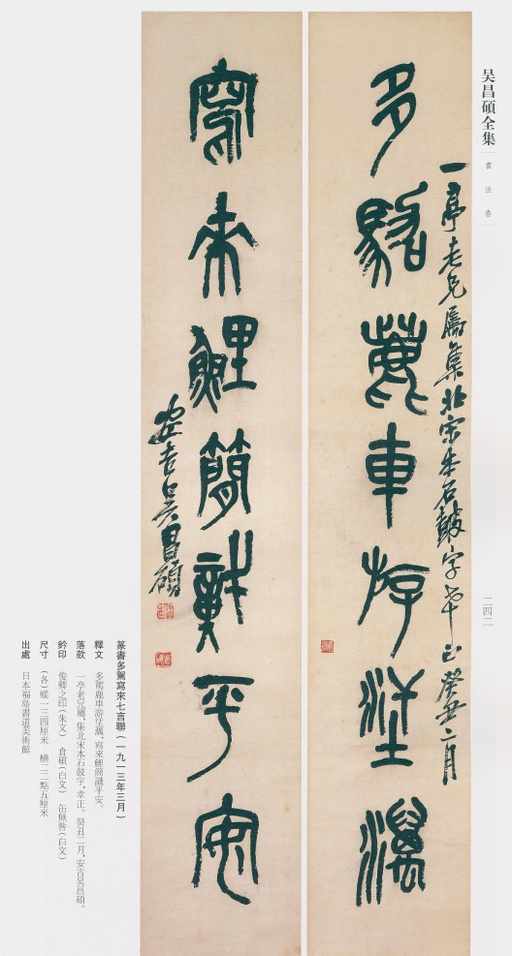 吴昌碩全集
書法卷
二四二
一亭老兄屬集北宋本石鼓字幸正癸丑二月
多駕鹿車游迋澫
寫來鯉簡識平安
安吉吴昌碩
篆書多駕寫來七言聯(一九一三年三月)
釋文 多駕鹿車游迋澫,寫來鯉簡識平安。
落款 一亭老兄屬,集北宋本石鼓字,幸正。癸丑二月,安吉吴昌碩。
鈐印 俊卿之印(朱文) 倉碩(白文) 缶無咎(白文)
尺寸 (各)縱一三四厘米 横二二點五厘米
出處 日本福島書道美術館